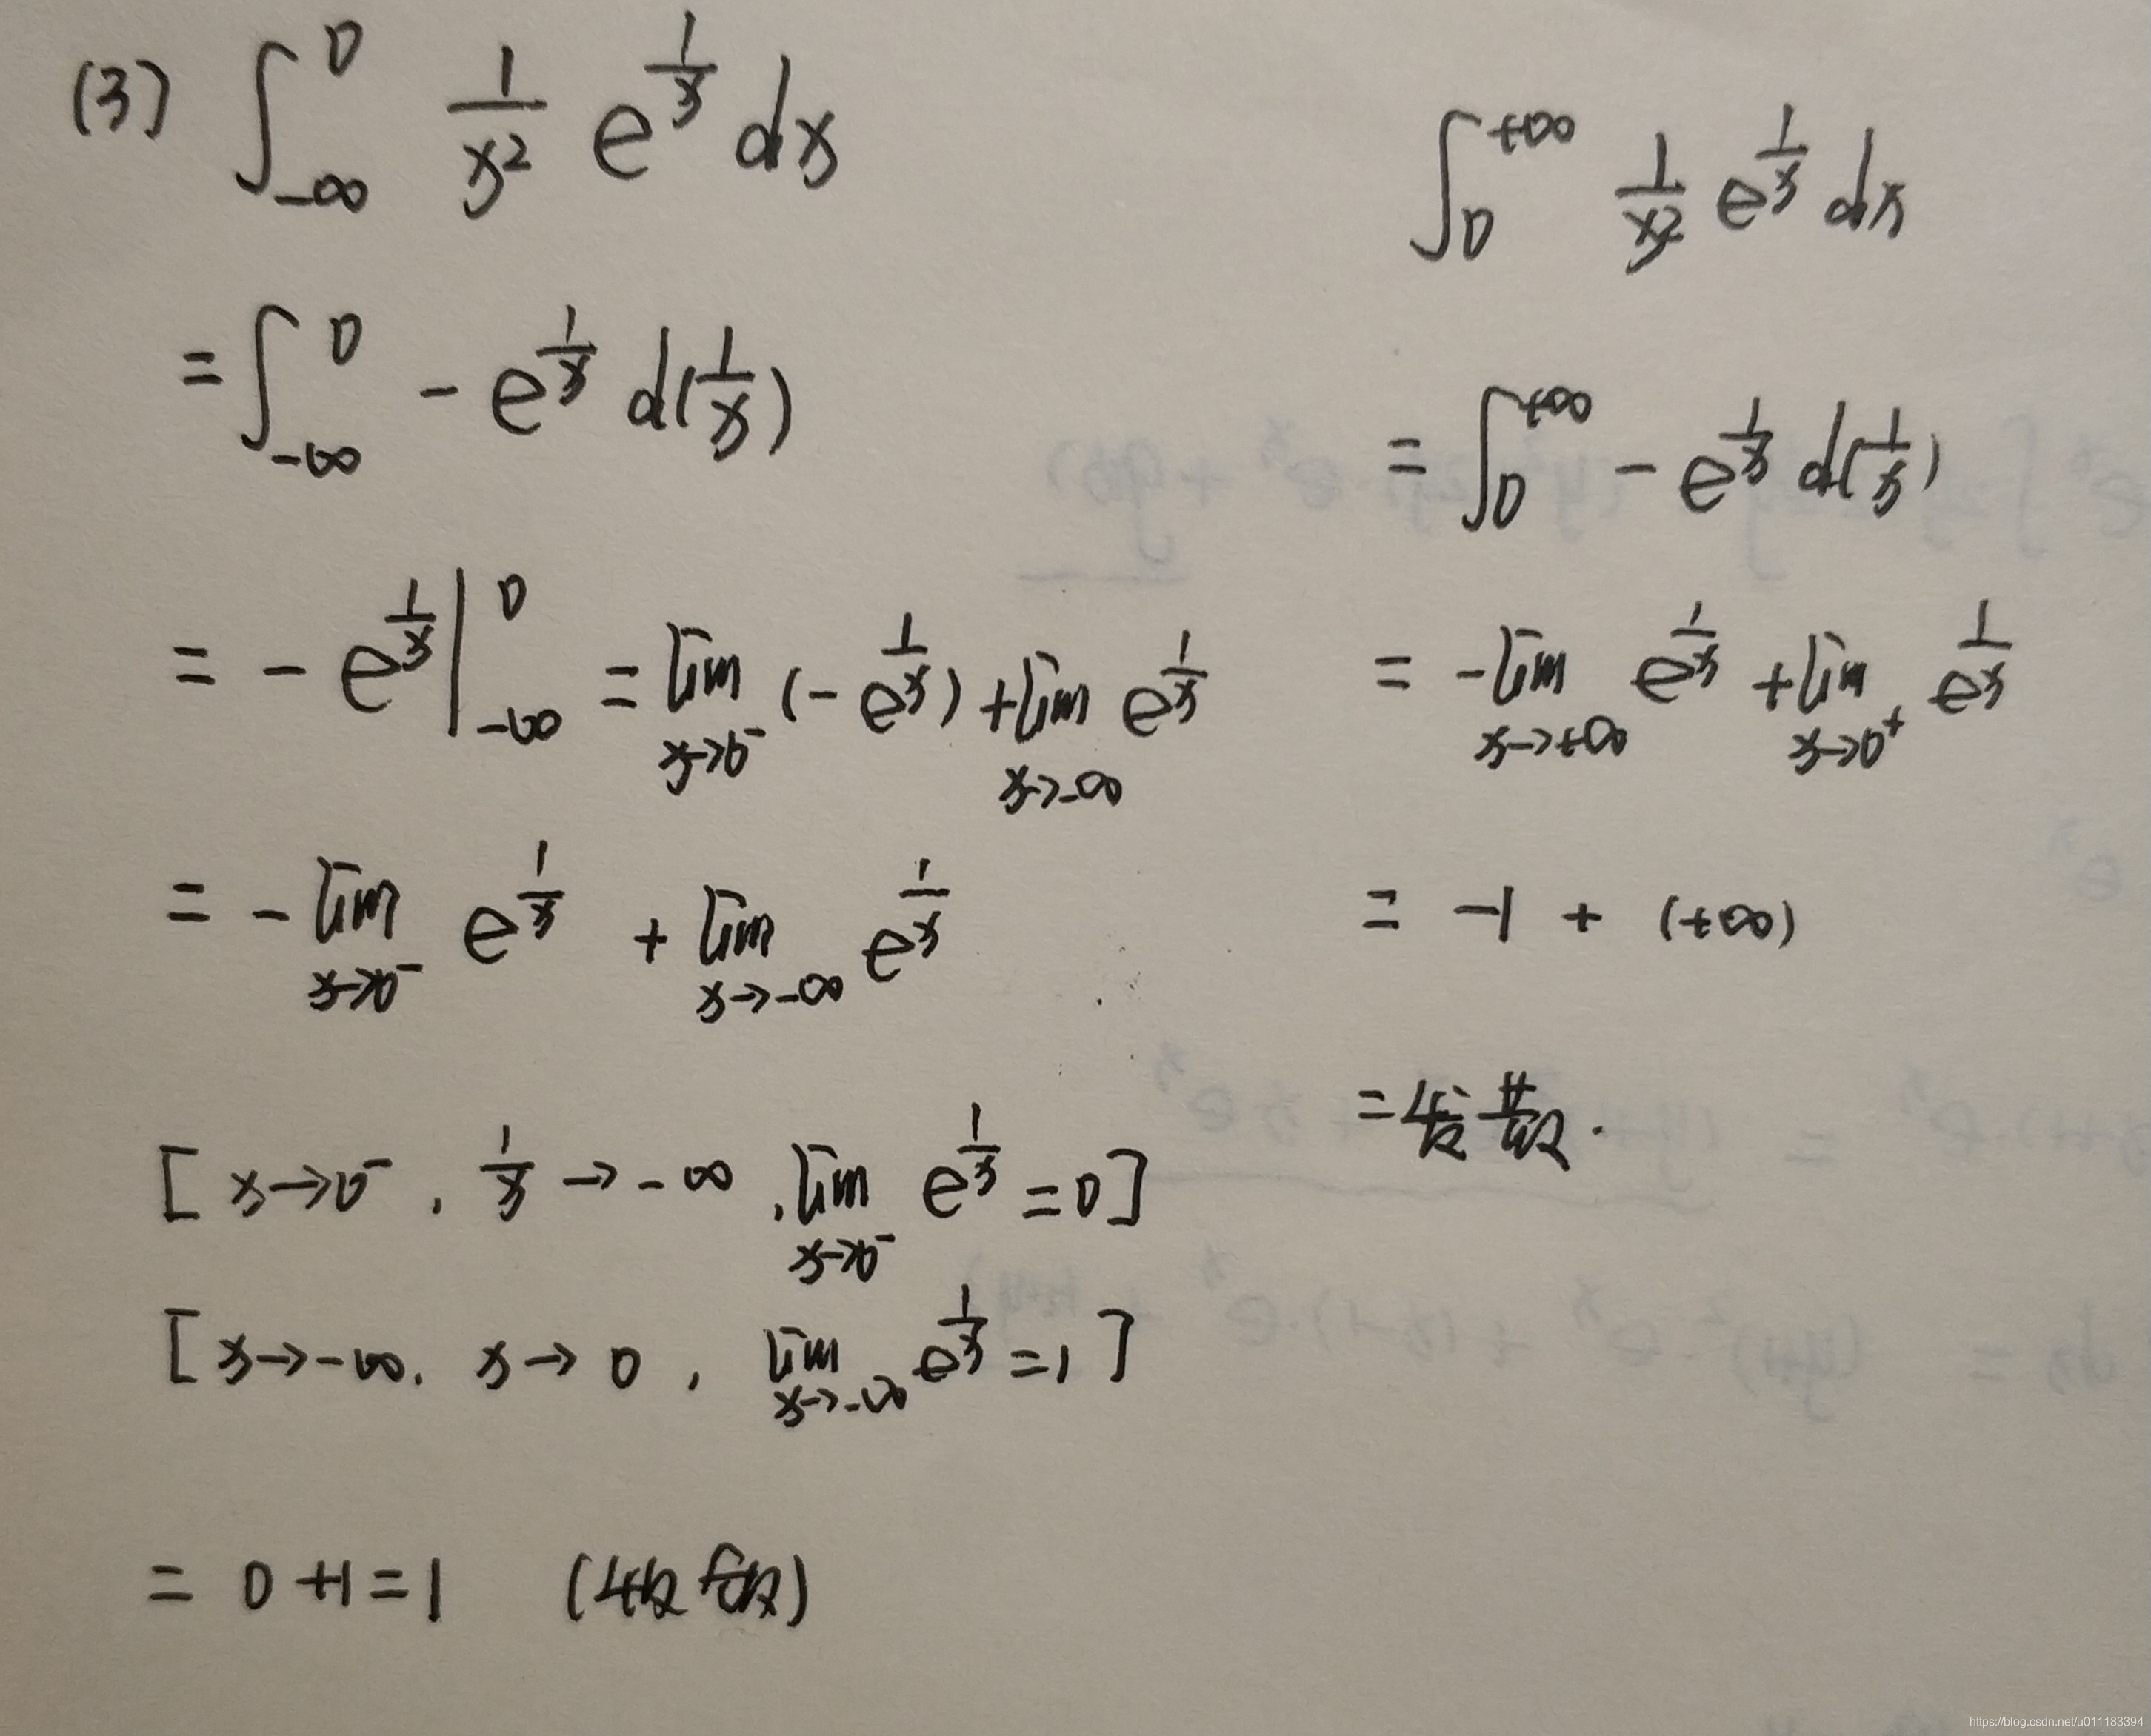 (3) ∫_{-∞}^{0} 1/x² e^{1/x} dx
= ∫_{-∞}^{0} - e^{1/x} d(1/x)
= - e^{1/x} |_{-∞}^{0} = lim_{x→0⁻} (- e^{1/x}) + lim_{x→-∞} e^{1/x}
= - lim_{x→0⁻} e^{1/x} + lim_{x→-∞} e^{1/x}
[ x→0⁻ , 1/x → -∞ , lim_{x→0⁻} e^{1/x} = 0 ]
[ x→-∞ , x→0 , lim_{x→-∞} e^{1/x} = 1 ]
= 0 + 1 = 1 (收敛)
∫_{0}^{+∞} 1/x² e^{1/x} dx
= ∫_{0}^{+∞} - e^{1/x} d(1/x)
= - lim_{x→+∞} e^{1/x} + lim_{x→0⁺} e^{1/x}
= -1 + (+∞)
= 发散.
https://blog.csdn.net/u011183394